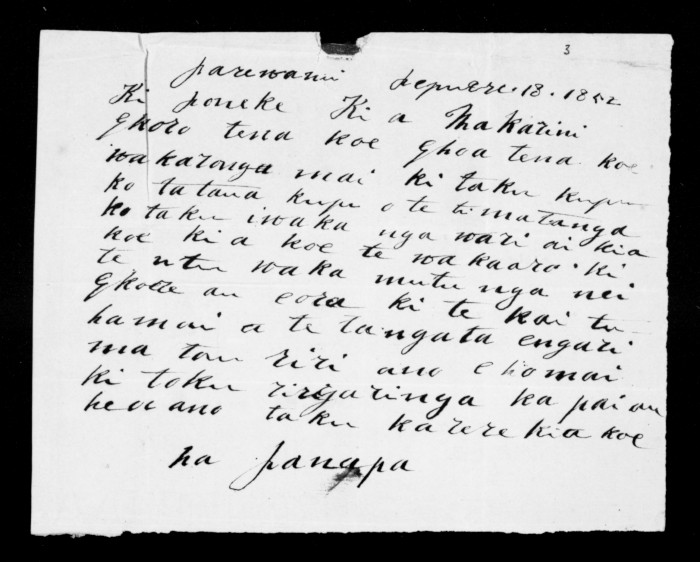 3
parewanui pepuere.18.1852
Ki poneke Ki a Makarini
Ekoro tena koe Ehoa tena koe
wakaronga mai ki taku kupu
ko tatana kupu o te timatanga
ko taku iwaka nga wari ai kia
koe ki a koe te wakaaro ki
te utu waka mutu nga nei
au eora ki te kai tu
hamai a te tangata engari
ma tou riri ano e homai
ki toku ringaringa ka pai au
heoi ano taku karere kia koe
na panapa